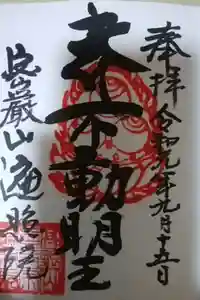 奉拝 令和元年九月十五日
不動明王
嚴山遍照院